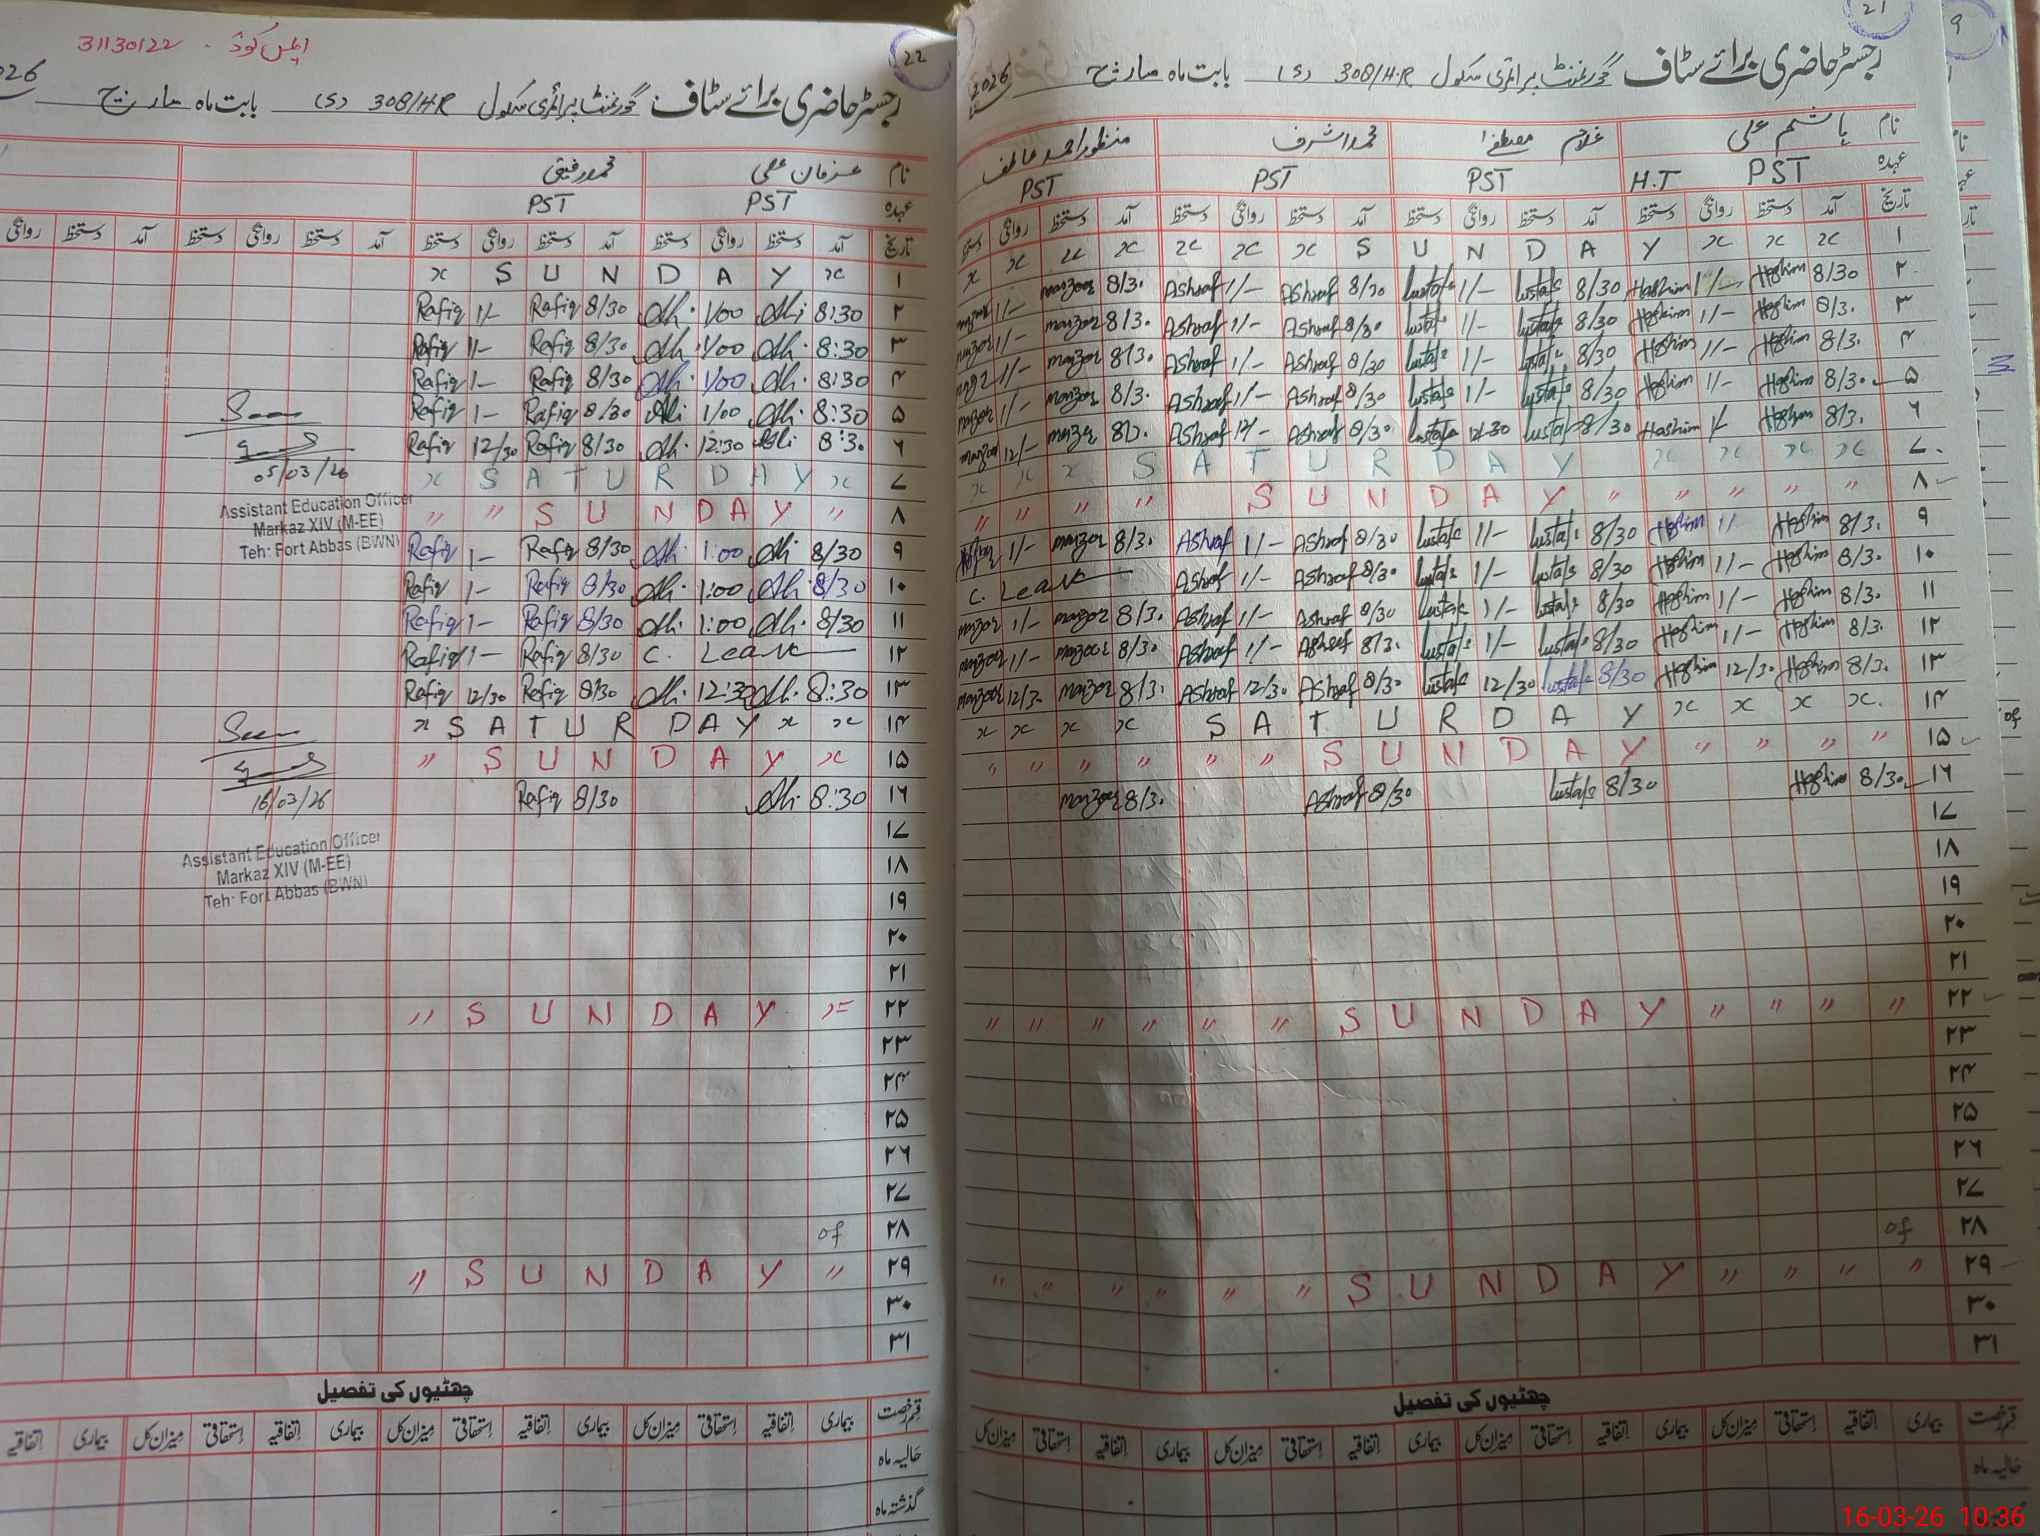 31130122 - ایمس کوڈ
22
رجسٹر حاضری برائے سٹاف گورنمنٹ پرائمری سکول 308/H.R (S) بابت ماہ مارچ 2026
نام عرفان علی محمد رفیق
عہدہ PST PST
تاریخ آمد دستخط روانگی دستخط آمد دستخط روانگی دستخط آمد دستخط روانگی دستخط آمد دستخط روانگی
۱ x S U N D A Y x
۲ Rafiq 1/- Rafiq 8/30 Ali 1/00 Ali 8:30
۳ Rafiq 1/- Rafiq 8/30 Ali 1/00 Ali 8:30
۴ Rafiq 1- Rafiq 8/30 Ali 1/00 Ali 8:30
۵ Rafiq 1- Rafiq 8/30 Ali 1/00 Ali 8:30
۶ Rafiq 12/30 Rafiq 8/30 Ali 12:30 Ali 8:3.
۷ x S A T U R D A Y x
۸ " " S U N D A Y "
۹ Rafiq 1- Rafiq 8/30 Ali 1:00 Ali 8/30
۱۰ Rafiq 1- Rafiq 8/30 Ali 1:00 Ali 8/30
۱۱ Rafiq 1- Rafiq 8/30 Ali 1:00 Ali 8/30
۱۲ Rafiq 1- Rafiq 8/30 C. Leave
۱۳ Rafiq 12/30 Rafiq 8/30 Ali 12:30 Ali 8:30
۱۴ x S A T U R D A Y x x
۱۵ " S U N D A Y x
۱۶ Rafiq 8/30 Ali 8:30
۱۷
۱۸
۱۹
۲۰
۲۱
۲۲ " S U N D A Y "
۲۳
۲۴
۲۵
۲۶
۲۷
۲۸ of
۲۹ " S U N D A Y "
۳۰
۳۱
Seen
05/03/26
Assistant Education Officer
Markaz XIV (M-EE)
Teh: Fort Abbas (BWN)
Seen
16/03/26
Assistant Education Officer
Markaz XIV (M-EE)
Teh: Fort Abbas (BWN)
چھٹیوں کی تفصیل
قسم رخصت بیماری اتفاقیہ استحقاقی میزان کل بیماری اتفاقیہ استحقاقی میزان کل بیماری اتفاقیہ استحقاقی میزان کل بیماری اتفاقیہ
حالیہ ماہ
گذشتہ ماہ
21
رجسٹر حاضری برائے سٹاف گورنمنٹ پرائمری سکول 308/H.R (S) بابت ماہ مارچ 2026
نام ہاشم علی غلام مصطفیٰ محمد اشرف منظور احمد عاطف
عہدہ PST H.T PST PST PST
تاریخ آمد دستخط روانگی دستخط آمد دستخط روانگی دستخط آمد دستخط روانگی دستخط آمد دستخط روانگی دستخط
۱ x x x x x x x S U N D A Y x x x
۲ manzoor 1/- manzoor 8/3. Ashraf 1/- Ashraf 8/30 Mustafa 1/- Mustafa 8/30 Hashim 1/- Hashim 8/30
۳ manzor 1/- manzor 8/3. Ashraf 1/- Ashraf 8/30 Mustafa 1/- Mustafa 8/30 Hashim 1/- Hashim 8/3.
۴ 1/- manzor 8/3. Ashraf 1/- Ashraf 8/30 Mustafa 1/- Mustafa 8/30 Hashim 1/- Hashim 8/3.
۵ manzor 1/- manzor 8/3. Ashraf 1/- Ashraf 8/30 Mustafa 1/- Mustafa 8/30 Hashim 1/- Hashim 8/3.
۶ manzor 12/- manzor Ashraf 12/- Ashraf 8/30 Mustafa 12/30 Mustafa 8/30 Hashim Hashim 8/3.
۷ x x x S A T U R D A Y x x x x
۸ " " " " S U N D A Y " " " " "
۹ 1/- manzor 8/3. Ashraf 1/- Ashraf 8/30 Mustafa 1/- Mustafa 8/30 Hashim 1/- Hashim 8/3.
۱۰ C. Leave Ashraf 1/- Ashraf 8/3. Mustafa 1/- Mustafa 8/30 Hashim 1/- Hashim 8/3.
۱۱ manzor 1/- manzor 8/3. Ashraf 1/- Ashraf 8/30 Mustafa 1/- Mustafa 8/30 Hashim 1/- Hashim 8/3.
۱۲ manzoor 1/- manzoor 8/3. Ashraf 1/- Ashraf 8/3. Mustafa 1/- Mustafa 8/30 Hashim 1/- Hashim 8/3.
۱۳ manzoor 12/3. manzor 8/3. Ashraf 12/3. Ashraf 8/30 Mustafa 12/30 Mustafa 8/30 Hashim 12/3. Hashim 8/3.
۱۴ x x x x S A T U R D A Y x x x x.
۱۵ " " " " " " S U N D A Y " " " "
۱۶ manzoor 8/3. Ashraf 8/30 Mustafa 8/30 Hashim 8/30
۱۷
۱۸
۱۹
۲۰
۲۱
۲۲ " " " " " " S U N D A Y " " " "
۲۳
۲۴
۲۵
۲۶
۲۷
۲۸ of
۲۹ " " " " " " S U N D A Y " " " "
۳۰
۳۱
چھٹیوں کی تفصیل
قسم رخصت بیماری اتفاقیہ استحقاقی میزان کل بیماری اتفاقیہ استحقاقی میزان کل بیماری اتفاقیہ استحقاقی میزان کل بیماری اتفاقیہ استحقاقی میزان کل
حالیہ ماہ
9
16-03-26 10:36